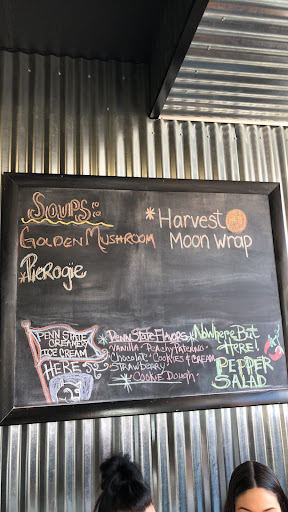 Soups:
Golden Mushroom
*Pierogie
*Harvest
Moon Wrap
Penn State
Creamery
Ice Cream
Here
Penn State Flavors
Vanilla · Peachy Paterno ·
Chocolate · Cookies & Cream
Strawberry
· Cookie Dough ·
Nowhere But
Pepper
Salad